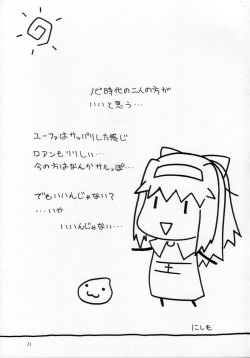 ノビ時代の二人の方が
いいと思う…
ユーファはサッパリした感じ
ロアンもりりしい…
今の方はなんかサルっぽ…
でもいいんじゃない？
…いや
いいんじゃない…
にしも